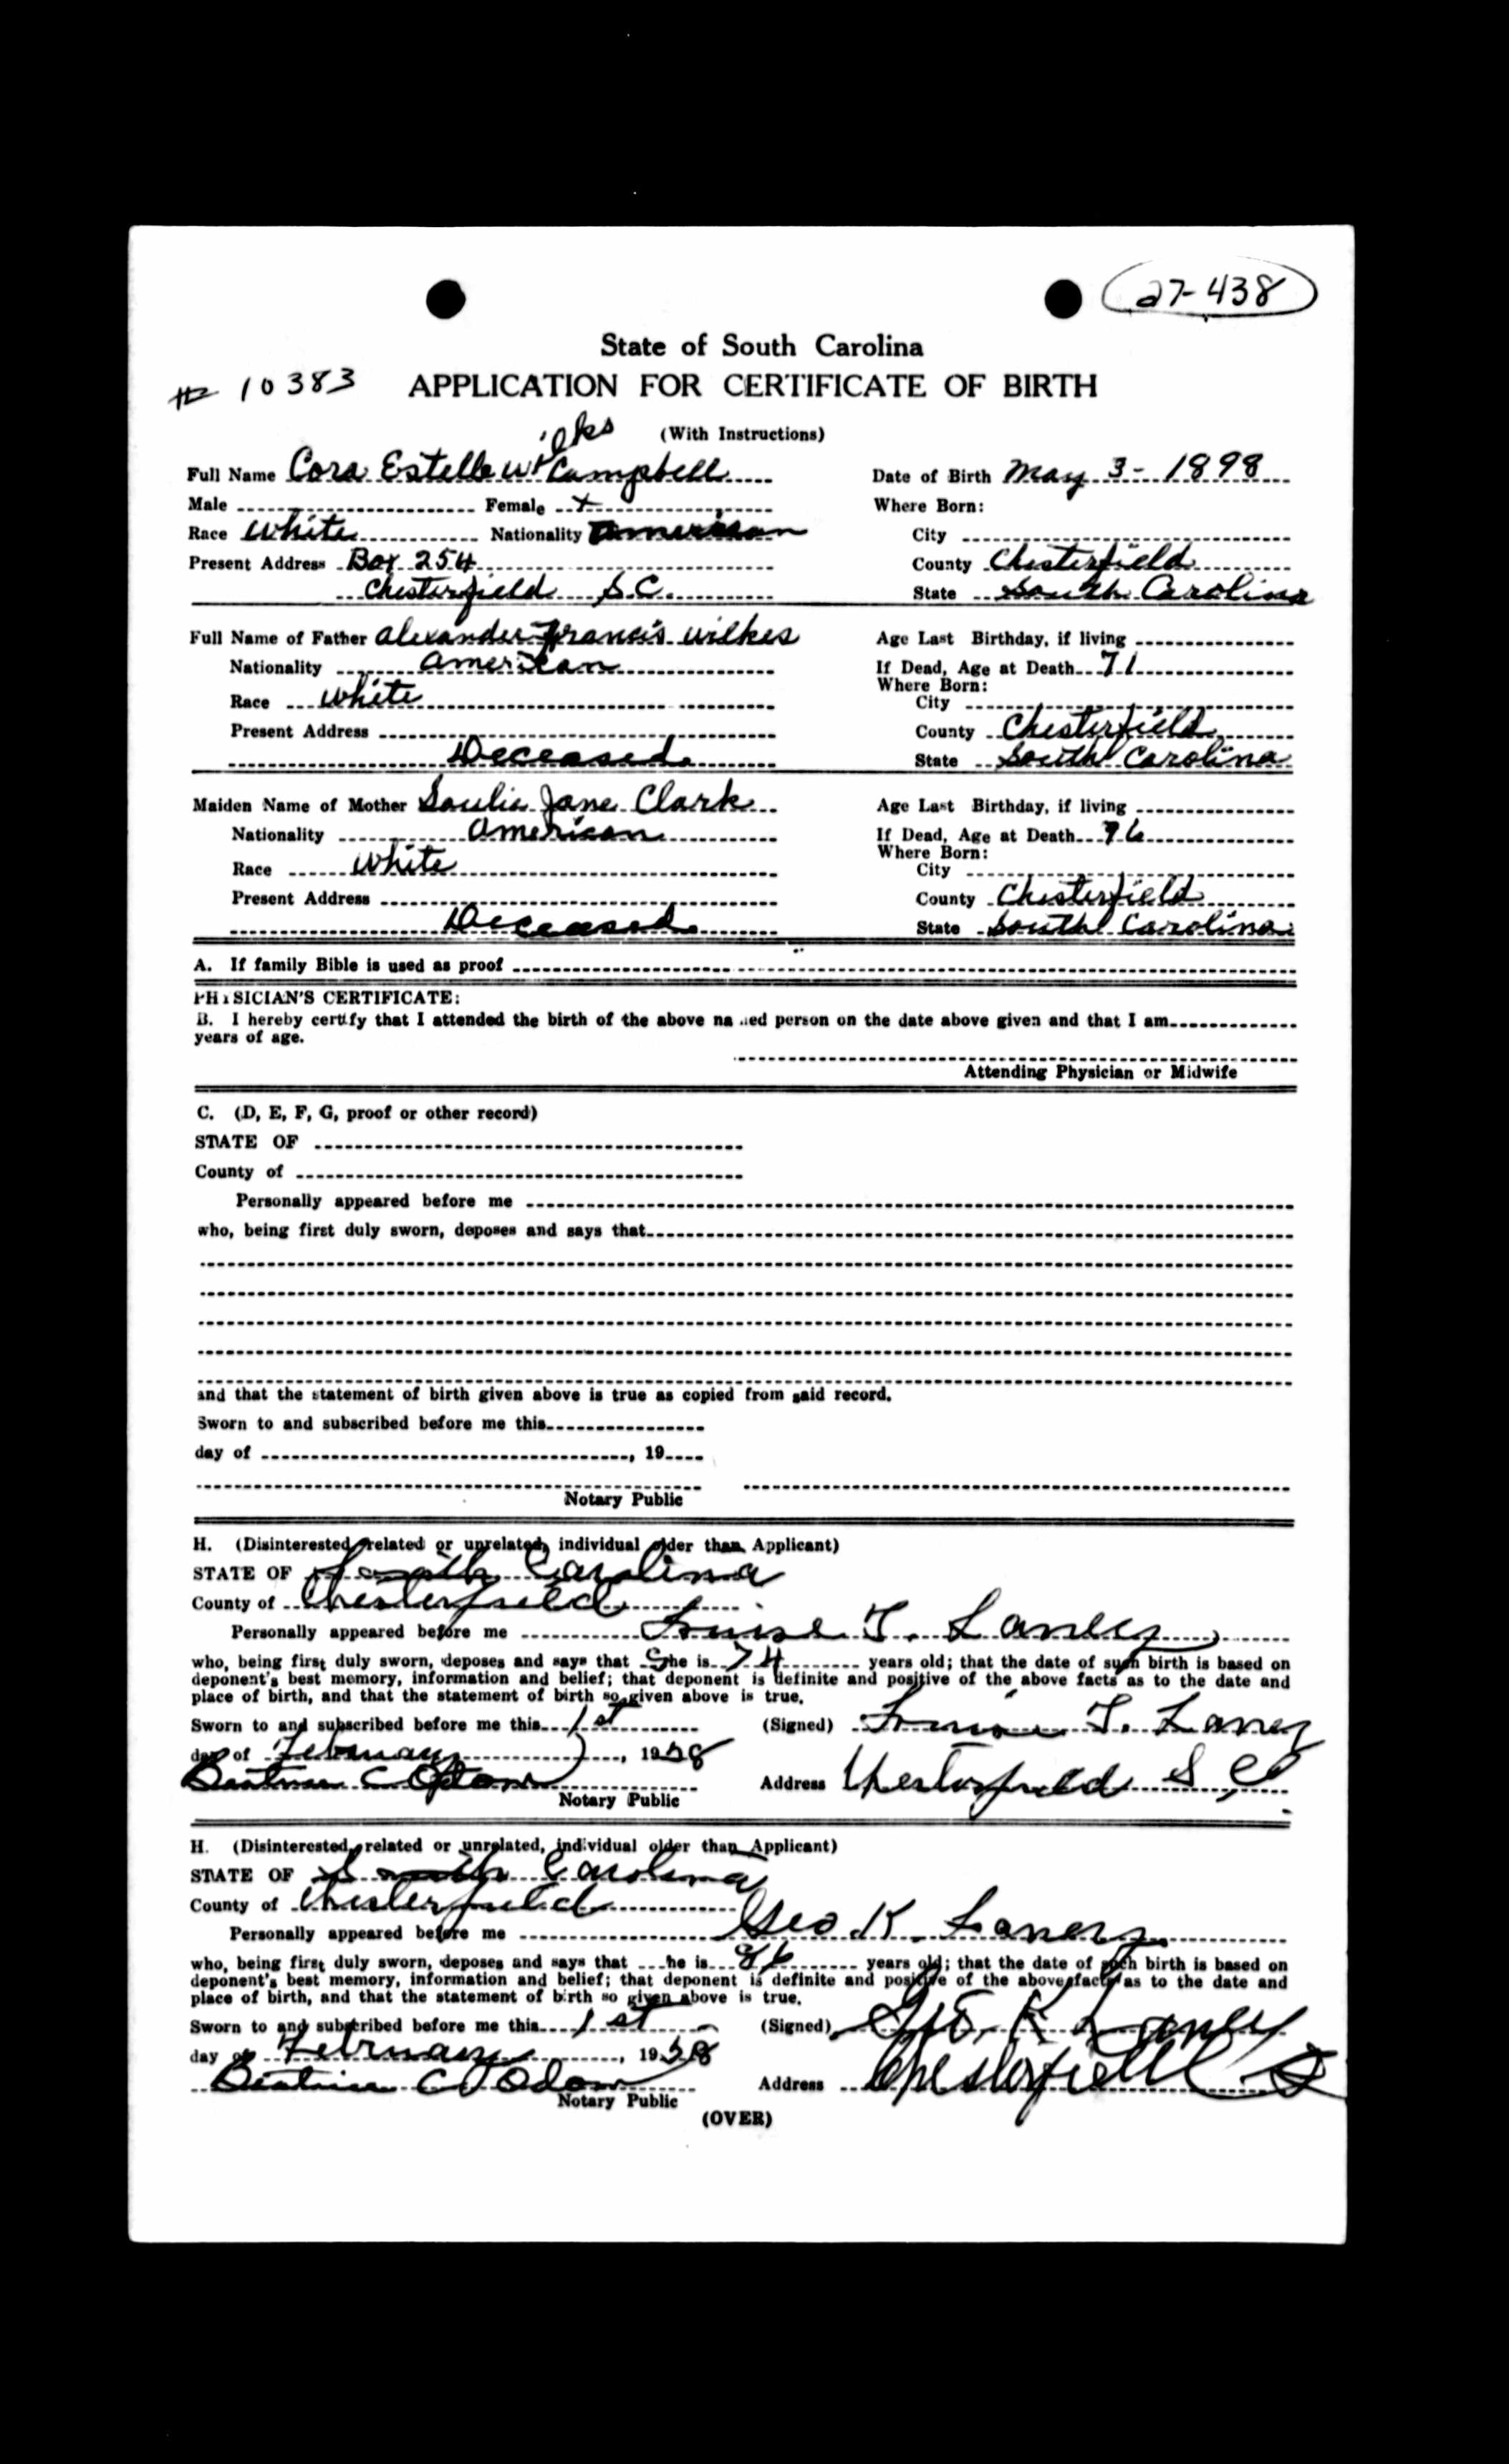 27-438
State of South Carolina
# 10383 APPLICATION FOR CERTIFICATE OF BIRTH
(With Instructions)
Full Name Cora Estelle Wilks Campbell Date of Birth May 3 - 1898
Male Female + Where Born:
Race White Nationality American City
Present Address Box 254 County Chesterfield
Chesterfield S.C. State South Carolina
Full Name of Father Alexander Francis Wilkes Age Last Birthday, if living
Nationality American If Dead, Age at Death 71
Where Born:
Race White City
Present Address County Chesterfield
Deceased State South Carolina
Maiden Name of Mother Jane Clark Age Last Birthday, if living
Nationality American If Dead, Age at Death 76
Where Born:
Race White City
Present Address County Chesterfield
Deceased State South Carolina
A. If family Bible is used as proof
PHYSICIAN'S CERTIFICATE:
B. I hereby certify that I attended the birth of the above named person on the date above given and that I am
years of age.
Attending Physician or Midwife
C. (D, E, F, G, proof or other record)
STATE OF
County of
Personally appeared before me
who, being first duly sworn, deposes and says that
and that the statement of birth given above is true as copied from said record.
Sworn to and subscribed before me this
day of , 19
Notary Public
H. (Disinterested, related or unrelated, individual older than Applicant)
STATE OF South Carolina
County of Chesterfield
Personally appeared before me Louise T. Laney
who, being first duly sworn, deposes and says that She is 74 years old; that the date of such birth is based on
deponent's best memory, information and belief; that deponent is definite and positive of the above facts as to the date and
place of birth, and that the statement of birth so given above is true.
Sworn to and subscribed before me this 1st (Signed) Louise T. Laney
day of February, 1958
Beatrice C Odom Address Chesterfield S C
Notary Public
H. (Disinterested, related or unrelated, individual older than Applicant)
STATE OF South Carolina
County of Chesterfield
Personally appeared before me Geo K. Laney
who, being first duly sworn, deposes and says that he is 86 years old; that the date of such birth is based on
deponent's best memory, information and belief; that deponent is definite and positive of the above facts as to the date and
place of birth, and that the statement of birth so given above is true.
Sworn to and subscribed before me this 1st (Signed) Geo. K Laney
day of February, 1958
Beatrice C Odom Address Chesterfield S
Notary Public
(OVER)